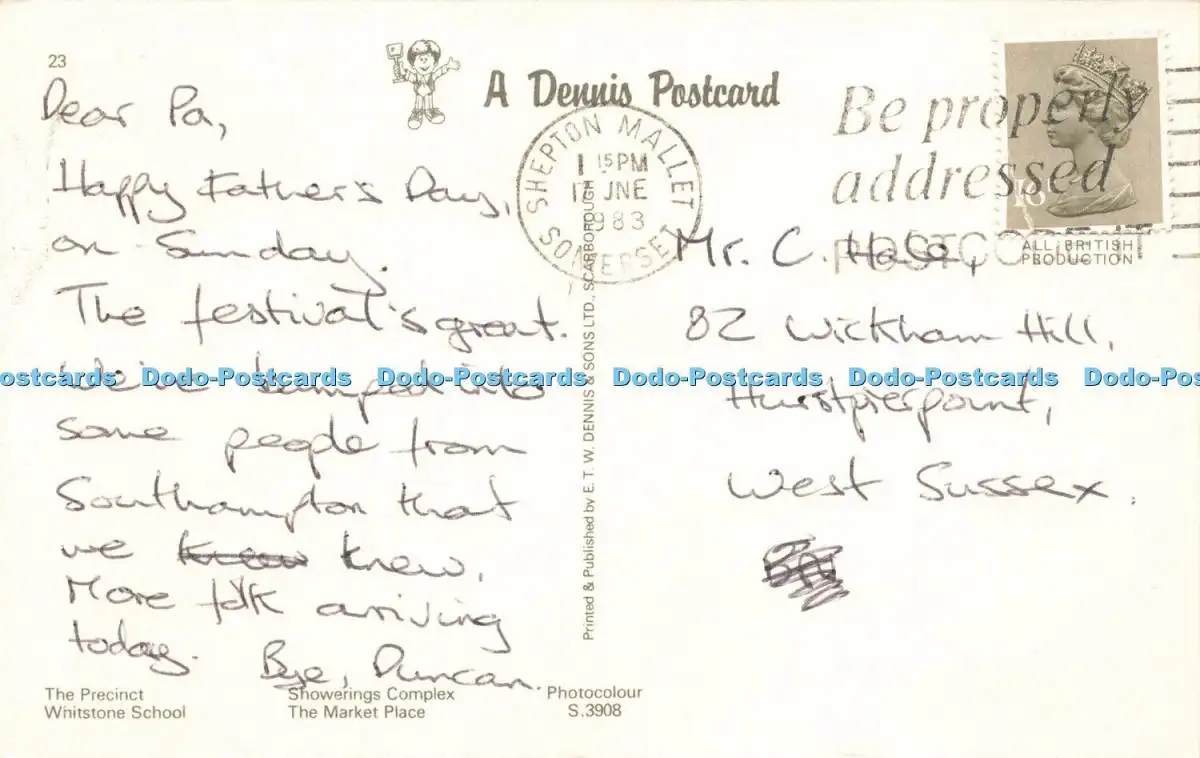 23
A Dennis Postcard
Dear Pa,
Happy Father's Day,
on Sunday.
The festival's great.
We've bumped into
some people from
Southampton that
we knew knew.
More folk arriving
today. Bye, Duncan.
The Precinct
Whitstone School
Showerings Complex
The Market Place
Photocolour
S.3908
Printed & Published by E. T. W. DENNIS & SONS LTD., SCARBOROUGH
SHEPTON MALLET
SOMERSET
15 PM
JNE
1983
Be properly
addressed
POSTCODE IT
ALL BRITISH
PRODUCTION
Mr. C. Hole,
82 Wickham Hill,
Hurstpierpoint,
West Sussex.
Dodo-Postcards Dodo-Postcards Dodo-Postcards Dodo-Postcards